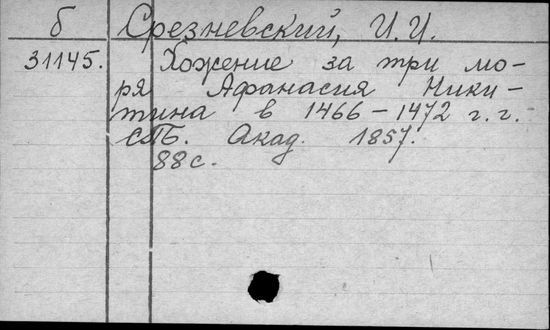 б Срезневский, И.И.
31145. Хожение за три мо-
ря Афанасия Ники-
тина в 1466-1472 г.г.
СПБ. Акад. 1857.
88с.